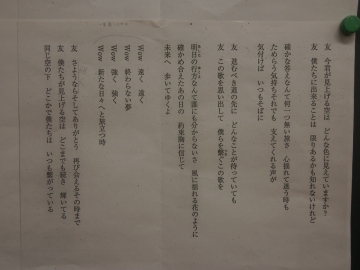 友 今君が見上げる空は どんな色に見えていますか?
友 僕たちに出来ることは 限りあるかも知れないけれど
確かな答えなんて何一つ無い旅さ 心揺れて迷う時も
ためらう気持ちそれでも 支えてくれる声が
気付けば いつもそばに
友 進むべき道の先に どんなことが待っていても
友 この歌を思い出して 僕らを繋ぐこの歌を
明日の行方なんて誰にも分からないさ 風に揺れる花のように
確かめ合えたあの日の 約束胸に信じて
未来へ 歩いてゆくよ
Wow 遠く 遠く
Wow 終わらない夢
Wow 強く 強く
Wow 新たな日々へと旅立つ時
友 さようならそしてありがとう 再び会えるその時まで
友 僕たちが見上げる空は どこまでも続き 輝いてる
同じ空の下 どこかで僕たちは いつも繋がっている